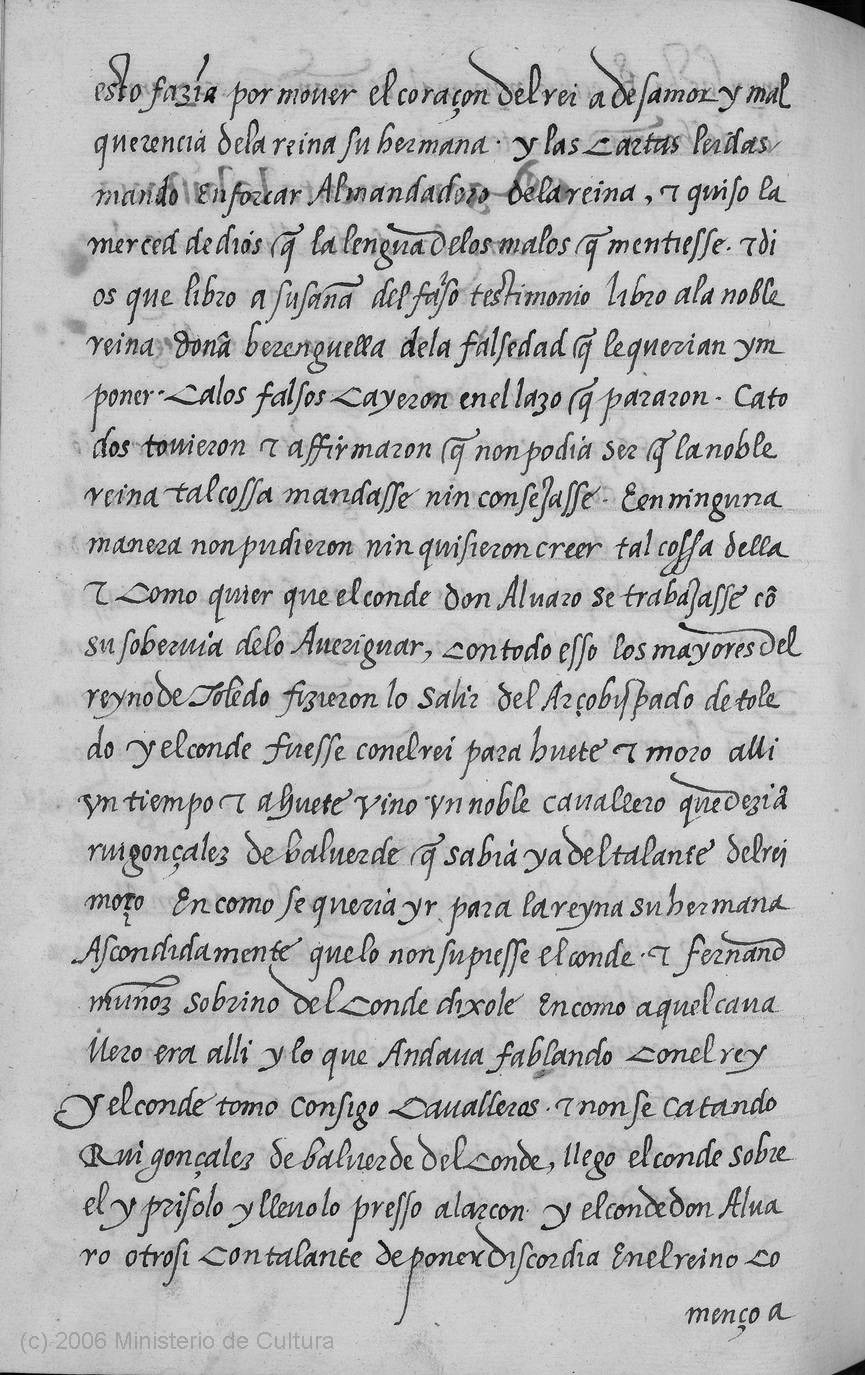 esto fazia por mouer el coraçon del rei a desamor y mal
querencia dela reina su hermana · y las Cartas leidas
mando Enforcar Al mandadero dela reina , ⁊ quiso la
merced de dios q̃ la lengua delos malos q̃ mentiesse . ⁊ di
os que libro a susana del falso testimonio libro ala noble
reina dona berenguella dela falsedad q̃ le querian ym
poner · Ca los falsos Cayeron enel lazo q̃ pararon · Ca to
dos tovieron ⁊ affirmaron q̃ non podia ser q̃ la noble
reina tal cossa mandasse nin consejasse · E en ninguna
manera non pudieron nin quisieron creer tal cossa della
⁊ Como quier que el conde don Aluaro se trabajasse cõ
su soberuia delo Aueriguar , con todo esso los mayores del
reyno de Toledo fizieron lo salir del Arçobispado de tole
do y el conde fuesse con el rei para huete ⁊ moro alli
vn tiempo ⁊ a huete vino vn noble cauallero que dezia
rui gonçalez de baluerde q̃ sabia ya del talante del rei
moço En como se queria yr para la reyna su hermana
Ascondidamente que lo non supiesse el conde · ⁊ fernand
munoz sobrino del Conde dixole En como aquel caua
llero era alli y lo que Andaua fablando con el rey
y el conde tomo consigo Caualleros · ⁊ non se catando
Rui gonçalez de baluerde del Conde , llego el conde sobre
el y prisolo y lleuolo presso alarcon · y el conde don Alua
ro otrosi Con talante de poner discordia En el reino Co
menço a
(c) 2006 Ministerio de Cultura